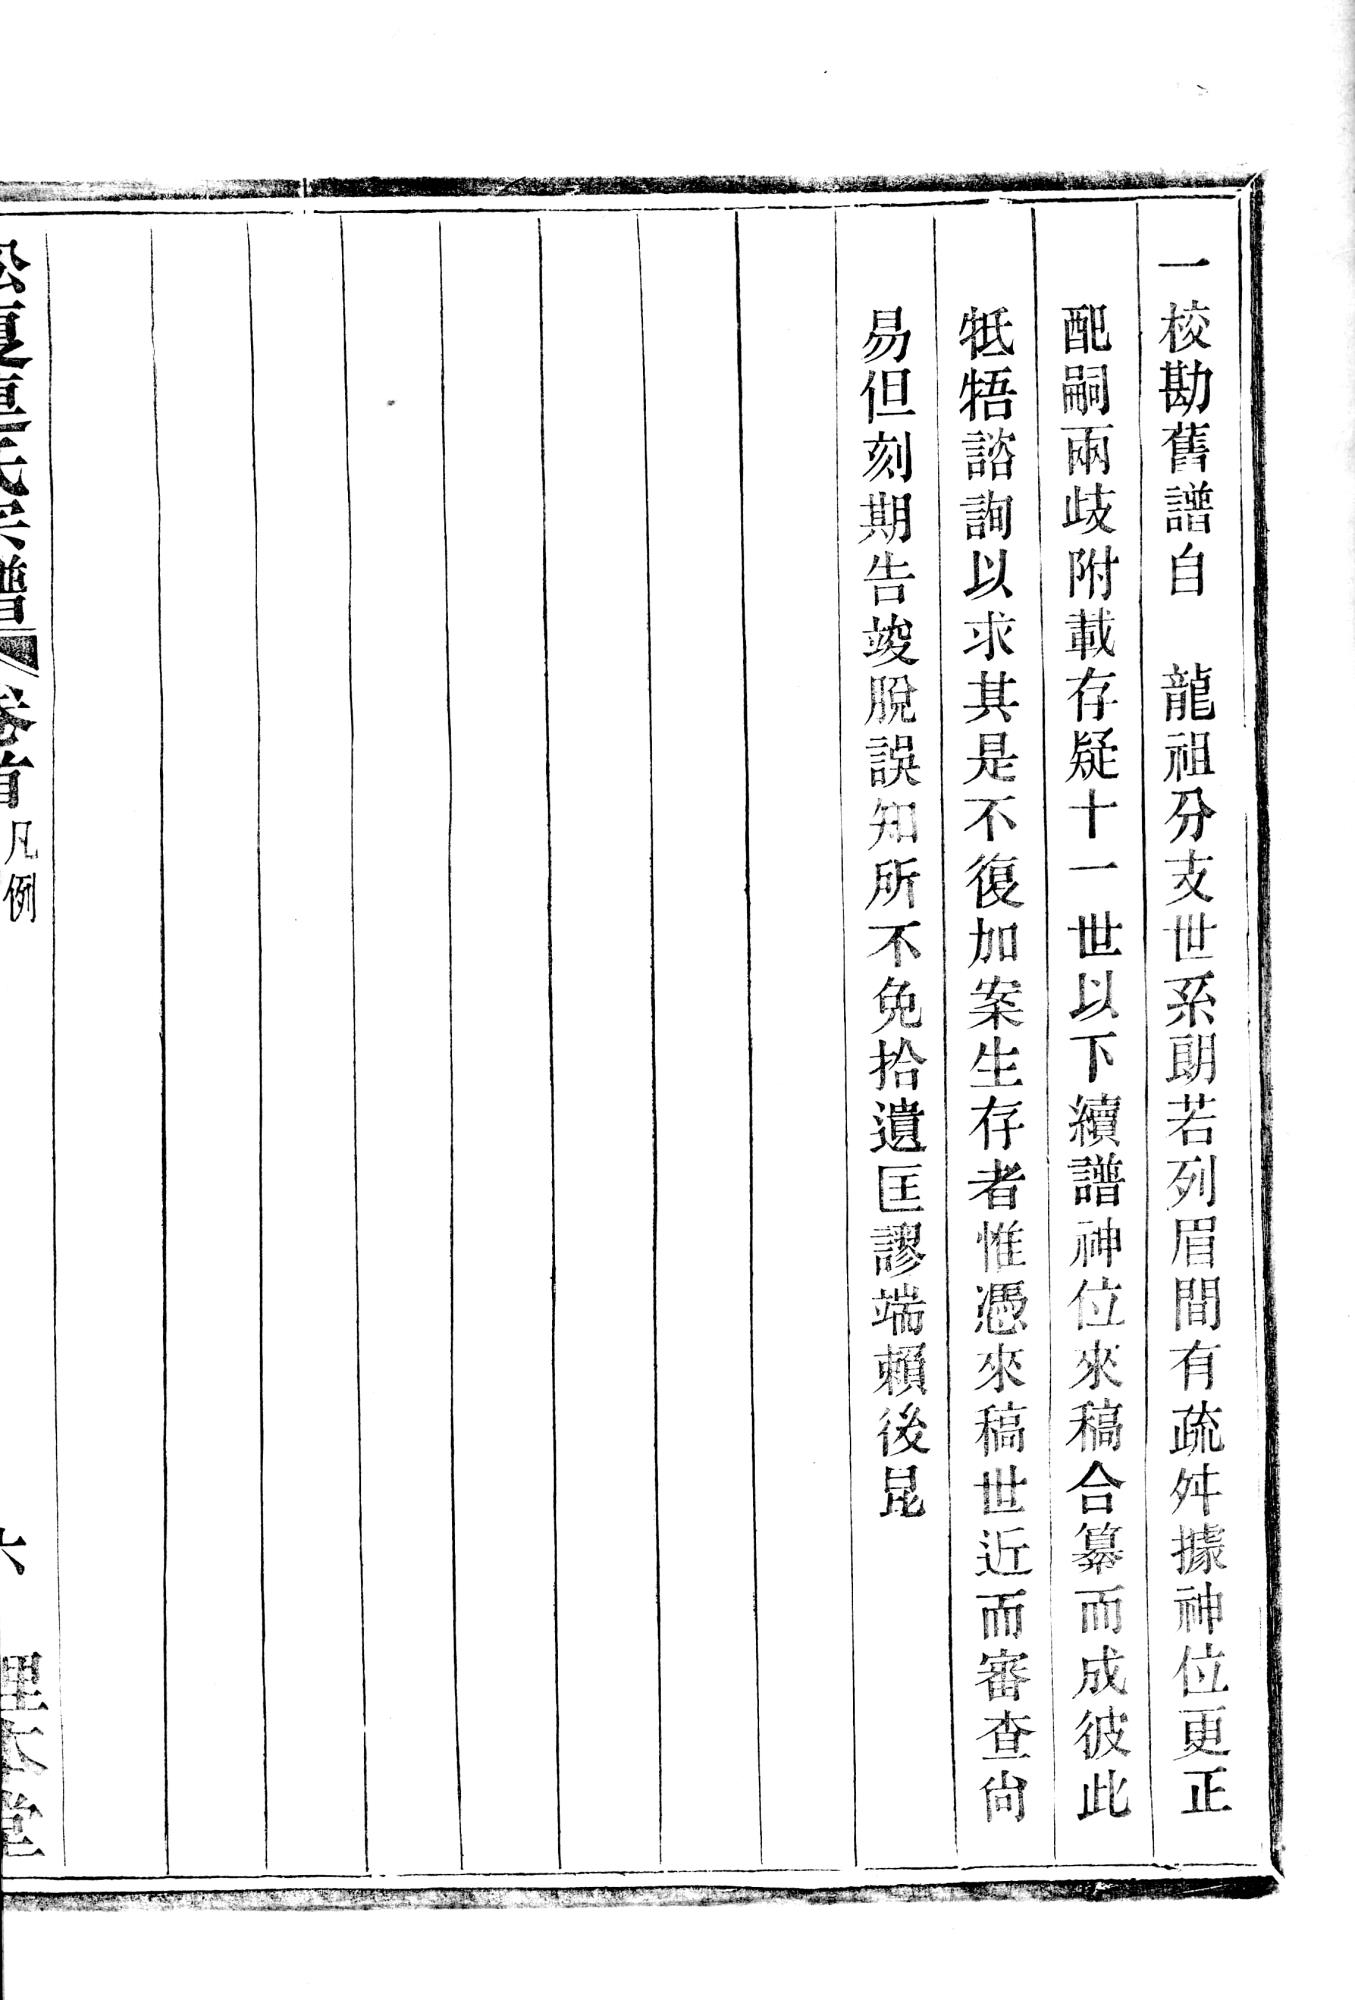 一校勘舊譜自　龍祖分支世系朗若列眉間有疏舛據神位更正
配嗣兩歧附載存疑十一世以下續譜神位來稿合纂而成彼此
牴牾諮詢以求其是不復加案生存者惟憑來稿世近而審查尙
易但刻期告竣脫誤知所不免拾遺匡謬端賴後昆
氏宗譜 卷首 凡例 六 理本堂